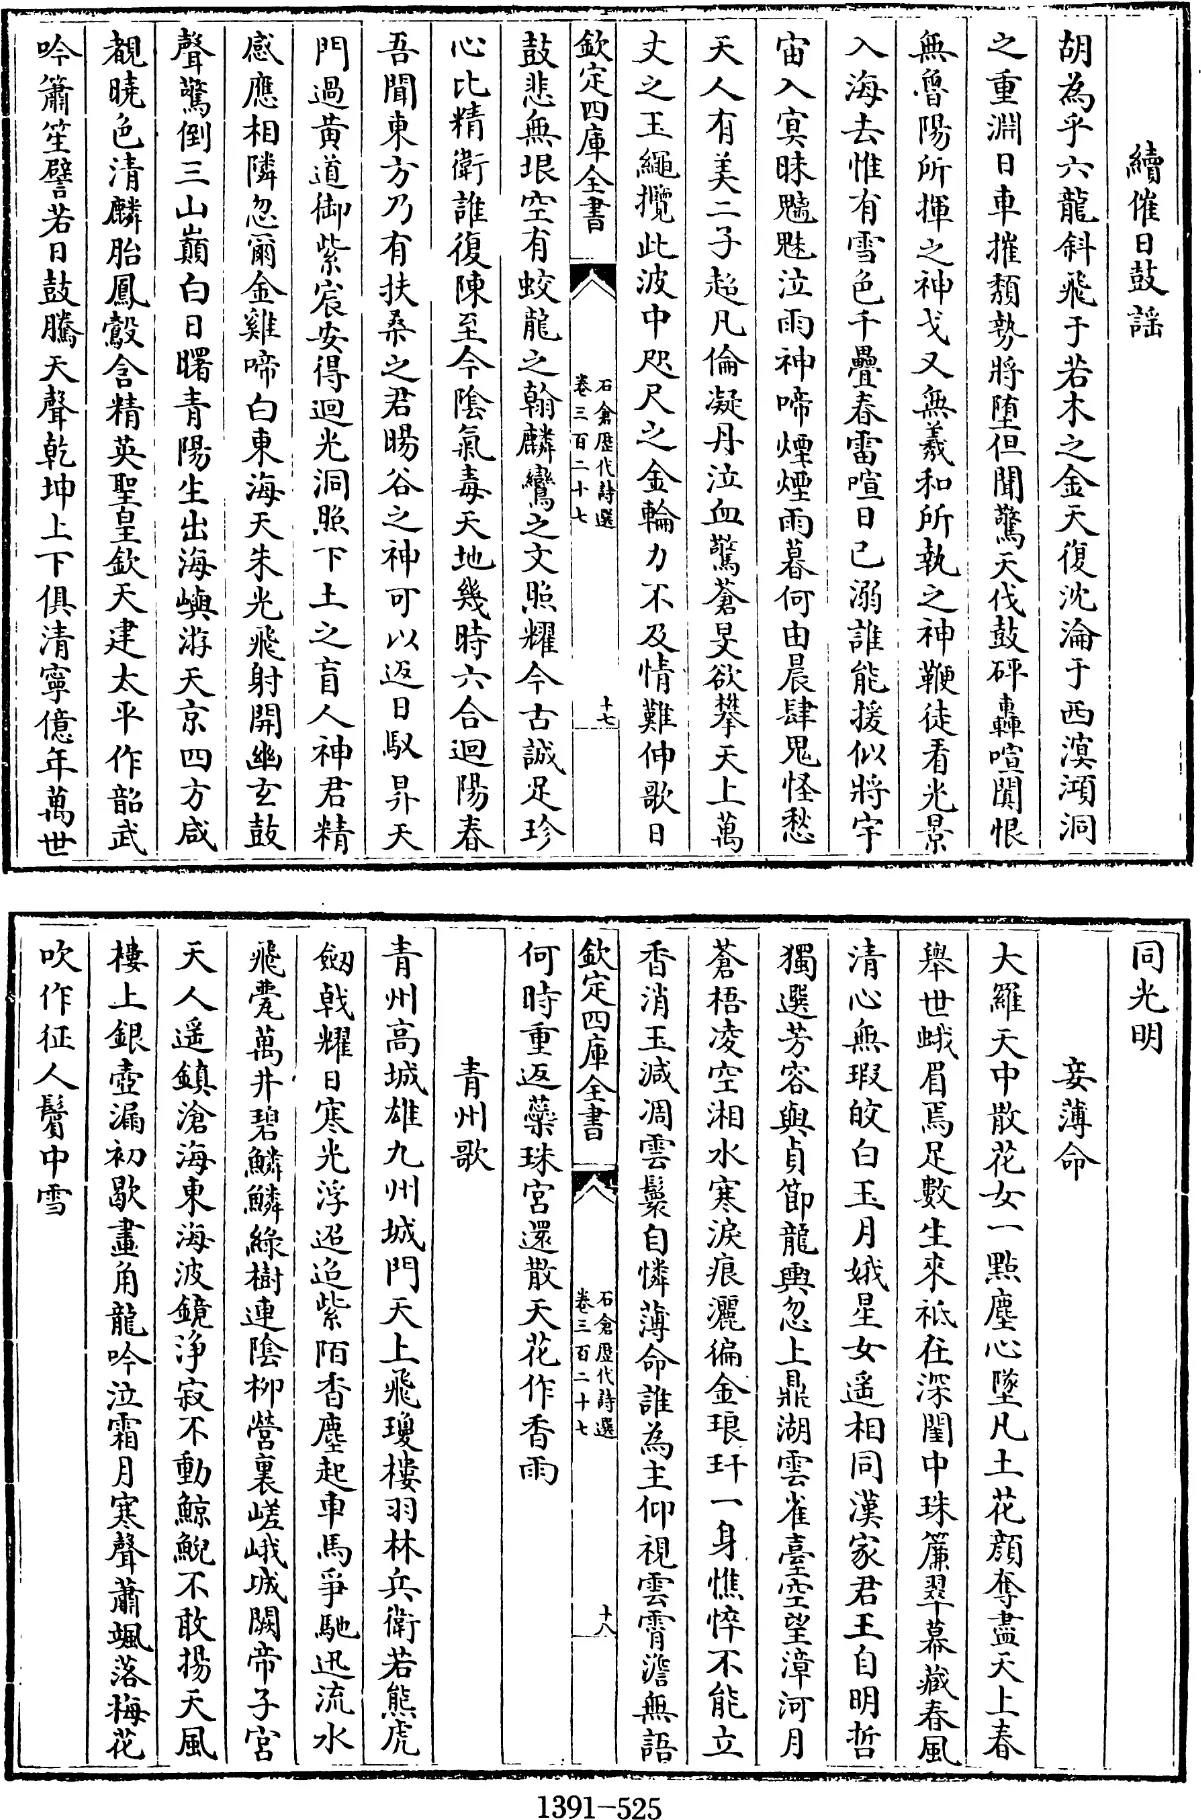 續催日鼓謡
胡為乎六龍斜飛于若木之金天復沈淪于西溟澒洞
之重淵日車摧頽勢將堕但聞驚天伐鼓砰轟喧闐恨
無魯陽所揮之神戈又無羲和所執之神鞭徒看光景
入海去惟有雪色千疊春雷喧日已溺誰能援似將宇
宙入㝠昧魑魅泣雨神啼煙煙雨暮何由晨肆鬼怪愁
天人有美二子超凡倫凝丹泣血驚蒼旻欲攀天上萬
丈之玉繩攬此波中咫尺之金輪力不及情難伸歌日
欽定四庫全書
石倉歴代詩選
卷三百二十七
十七
鼓悲無垠空有蛟龍之翰麟鸞之文照耀今古誠足珍
心比精衛誰復陳至今陰氣毒天地幾時六合迴陽春
吾聞東方乃有扶桑之君暘谷之神可以返日馭昇天
門過黄道御紫宸安得迴光洞照下土之盲人神君精
感應相隣忽爾金雞啼白東海天朱光飛射開幽玄鼓
聲驚倒三山巔白日曙青陽生出海嶼游天京四方咸
覩曉色清麟胎鳳鷇含精英聖皇欽天建太平作韶武
吟簫笙譬若日鼓騰天聲乾坤上下俱清寧億年萬世
同光明
妾薄命
大羅天中散花女一點塵心墜凡土花顔奪盡天上春
舉世蛾眉焉足數生來祗在深閨中珠簾翠幕藏春風
清心無瑕皎白玉月娥星女遥相同漢家君王自明哲
獨選芳容與貞節龍輿忽上鼎湖雲雀臺空望漳河月
蒼梧凌空湘水寒淚痕灑徧金琅玕一身憔悴不能立
香消玉減凋雲鬟自憐薄命誰為主仰視雲霄澹無語
欽定四庫全書
石倉歴代詩選
卷三百二十七
十八
何時重返蘂珠宮還散天花作香雨
青州歌
青州髙城雄九州城門天上飛瓊樓羽林兵衛若熊虎
劔戟耀日寒光浮迢迢紫陌杳塵起車馬爭馳迅流水
飛甍萬井碧鱗鱗緑樹連陰柳營裏嵯峨城闕帝子宮
天人遥鎮滄海東海波鏡浄寂不動鯨鯢不敢揚天風
樓上銀壺漏初歇畫角龍吟泣霜月寒聲蕭颯落梅花
吹作征人鬢中雪
1391-525